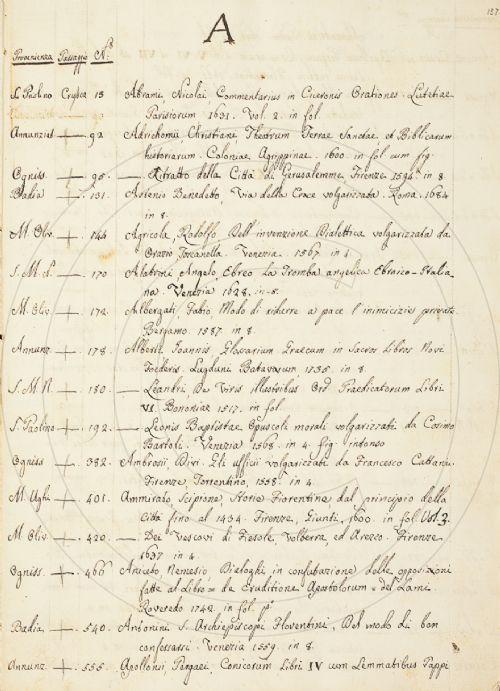 137
A
Provenienza Passaggi N.º
S. Paolino Crusca 15 Abrami Nicolai Commentarius in Ciceronis Orationes. Lutetiae
Parisiorum 1631. Vol. 2. in fol.
Annunzia — 92 Adrichomii Christiani Theatrum Terrae Sanctae et Biblicarum
historiarum. Coloniae Agrippinae. 1600. in fol. cum fig.
Ogniss. — 95 — Ritratto della Città di Gerusalemme. Firenze 1594. in 8.
Badia — 131. Arsenio Benedetto, Via della Croce volgarizzata. Roma. 1684
in 8.
M. Oliv. — 144 Agricola, Rodolfo Dell'invenzione Dialettica volgarizzata da
Orazio Toscanella. Venezia. 1567. in 4.
S. M. N. — 170 Alatrini Angelo, Ebreo La Tromba angelica Ebraico-Italia
na. Venezia 1628. in-8.
M. Oliv. — 172. Albergati, Fabio Modo di ridurre a pace l'inimicizie private
Bergamo. 1587. in 8.
Annunz. — 178. Alberti Joannis, Glossarium Graecum in Sacros Libros Novi
Foederis. Lugduni Batavorum 1735. in 8.
S. M. N. — 180. — Leandri, De Viris illustribus Ord. Praedicatorum Libri
VI. Bononiae 1517. in fol.
S. Paolino — 192. — Leonis Baptistae, Opuscoli morali volgarizzati da Cosimo
Bartoli. Venezia 1568. in 4. fig. intonso
Ogniss. — 382. Ambrosii Divi. Gli ufficii volgarizzati da Francesco Cattani.
Firenze, Torrentino, 1558. in 4.
M. Ughi — 401. Ammirato, Scipione, Storie Fiorentine dal principio della
Città fino al 1434. Firenze, Giunti, 1600. in fol. Vol. 3.
M. Oliv. — 420. — Dei Vescovi di Fiesole, Volterra, ed Arezzo. Firenze
1637 in 4.
Ogniss. — 466 Anicedo Nemesio Bieloghi in confutazione delle opposizioni
fatte al Libro = de Eruditione Apostolorum = del Lami.
Roveredo 1742. in fol. p.º
Badia — 540. Antonini S. Archiepiscopi Florentini, Del modo di ben
confessarsi. Venezia 1559. in 8.
Annunz. — 555. Apollonii Pergaei, Conicorum Libri IV cum Lemmatibus Pappi